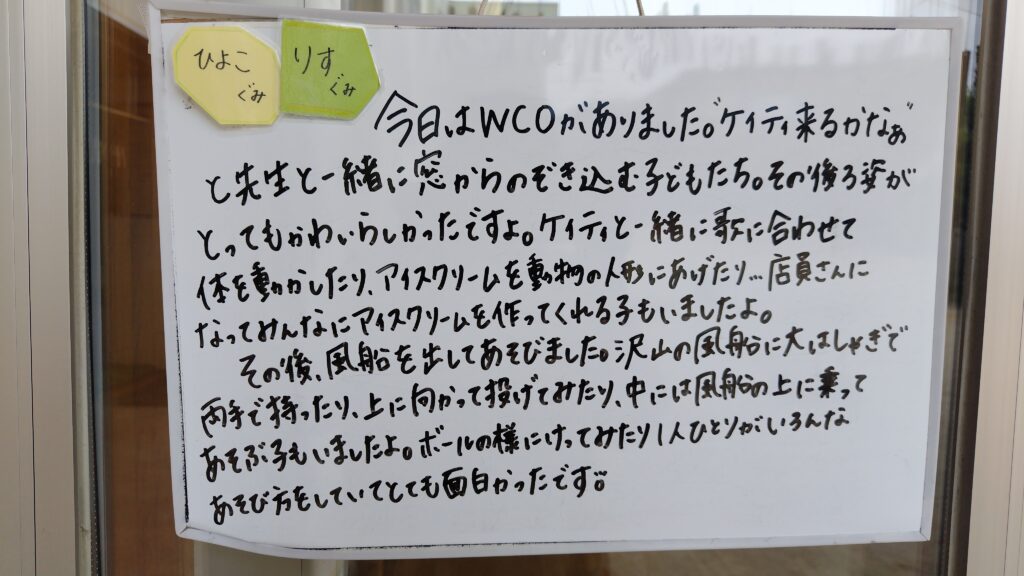 ひよこ
ぐみ
りす
ぐみ
今日はWCOがありました。"ケイティ来るかなぁ"
と先生と一緒に窓からのぞき込む子どもたち。その後ろ姿が
とってもかわいらしかったですよ。ケイティと一緒に歌に合わせて
体を動かしたり、アイスクリームを動物の人形にあげたり…店員さんに
なってみんなにアイスクリームを作ってくれる子もいましたよ。
その後、風船を出してあそびました。沢山の風船に大はしゃぎで
両手で持ったり、上に向かって投げてみたり、中には風船の上に乗って
あそぶ子もいましたよ。ボールの様にけってみたり1人ひとりがいろんな
あそび方をしていてとても面白かったです。